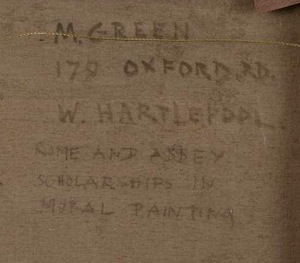 M. GREEN
179 OXFORD. RD.
W. HARTLEPOOL.
ROME AND ABBEY
SCHOLARSHIPS IN
MURAL PAINTING